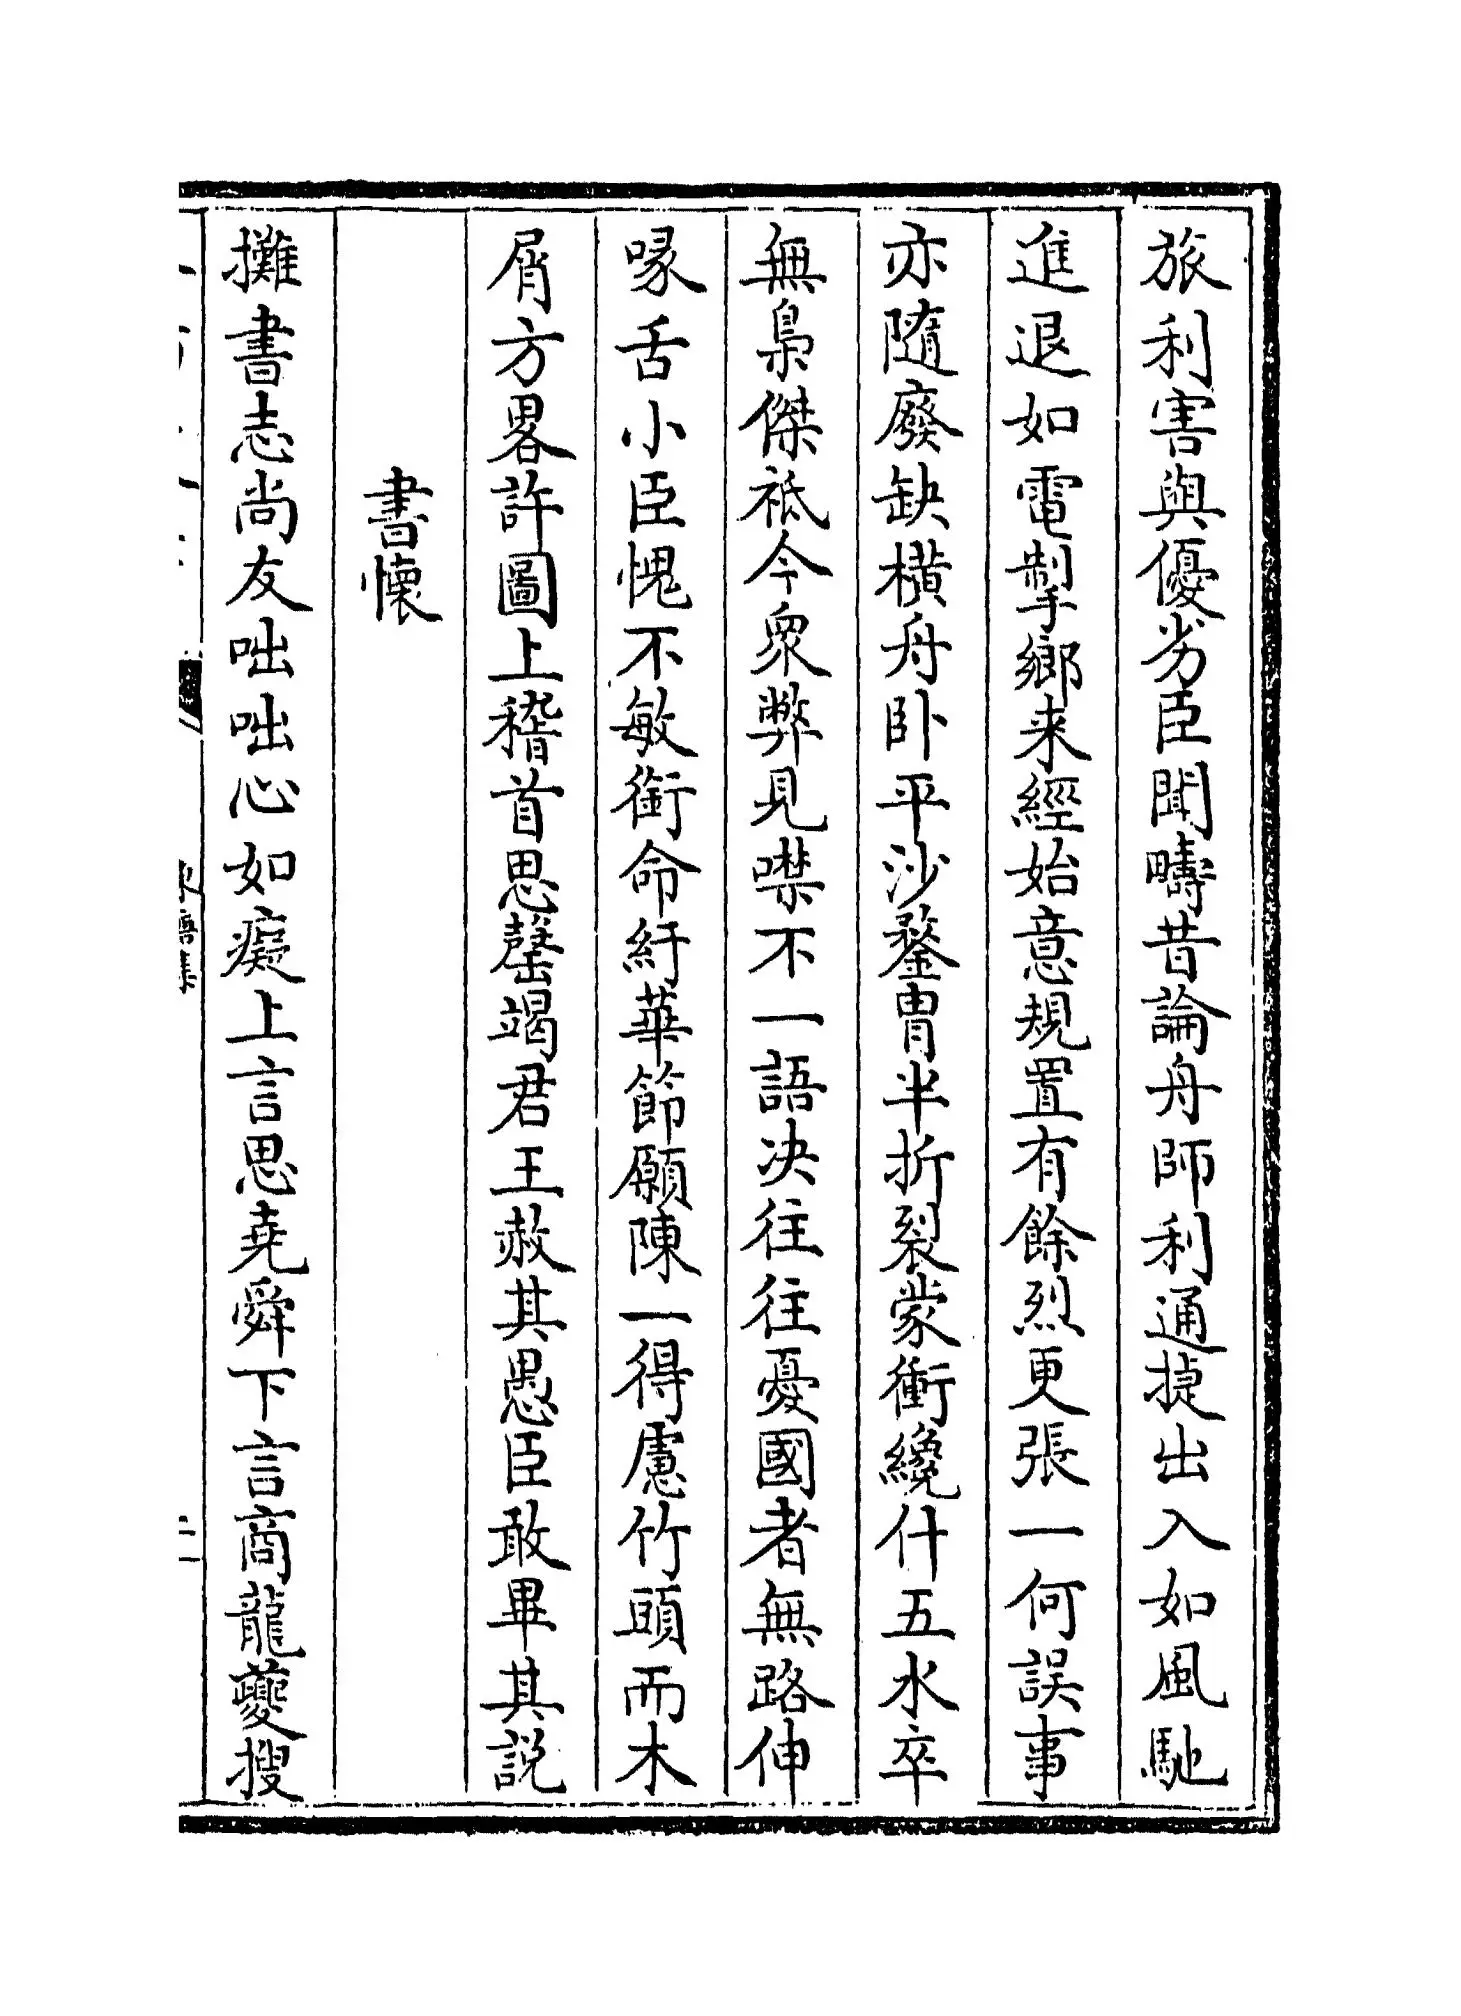 旅利害與優劣臣聞疇昔論舟師利通捷出入如風馳
進退如電掣鄉来經始意規置有餘烈更張一何誤事
亦隨廢缺橫舟卧平沙鍪胄半折裂蒙衝纔什五水卒
無梟傑祗今衆弊見噤不一語决往往憂國者無路伸
喙舌小臣愧不敏銜命紆華節願陳一得慮竹頭而木
屑方畧許圖上稽首思罄竭君王赦其愚臣敢畢其説
書懷
攤書志尚友咄咄心如癡上言思堯舜下言商龍夔搜
集